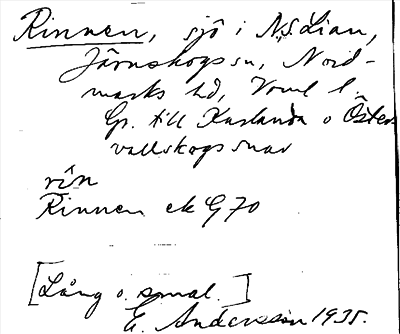 Rinnen, sjö i N. S. Lian,
Järnskogs sn, Nord-
marks hd, Vrml l.
Gr. till Karlanda o Öster
vallskogs snar
rín
Rinnen ek G 70
[Lång o. smal.]
E. Andersson 1935.